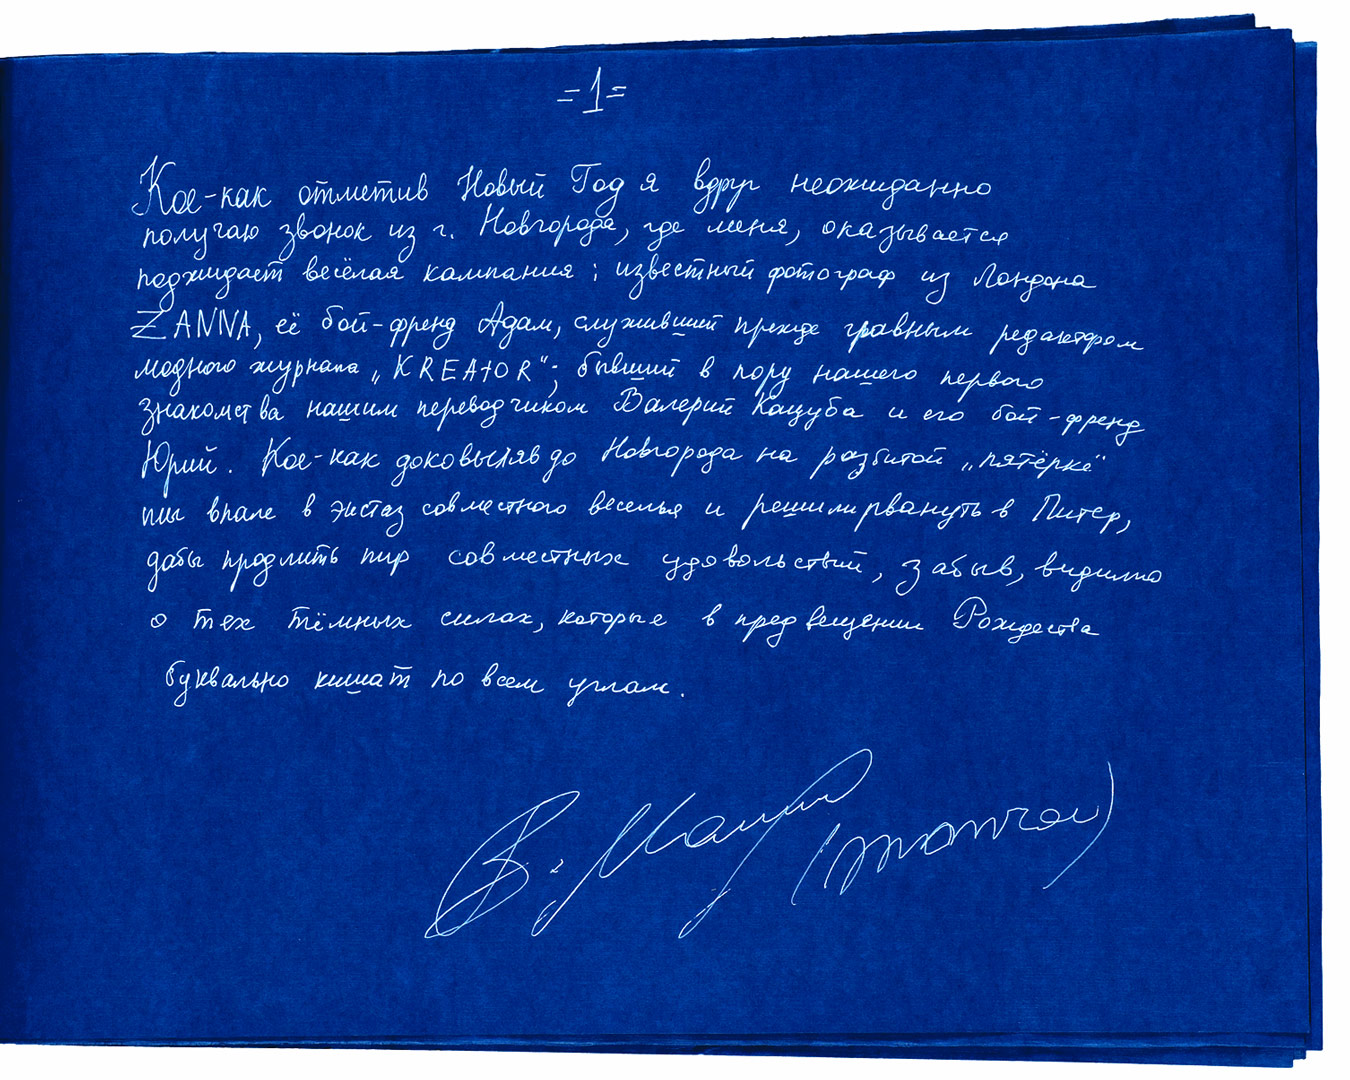 =1=
Кое-как отметив Новый Год я вдруг неожиданно
получаю звонок из г. Новгорода, где меня, оказывается
поджидает весёлая кампания: известный фотограф из Лондона
ZANNA, её бой-френд Адам, служивший прежде главным редактором
модного журнала „KREATOR"; бывший в пору нашего первого
знакомства нашим переводчиком Валерий Кацуба и его бой-френд
Юрий. Кое-как доковыляв до Новгорода на разбитой „пятёрке"
мы впали в экстаз совместного веселья и решили рвануть в Питер,
дабы продлить пир совместных удовольствий, забыв, видимо
о тех тёмных силах, которые в предвещении Рождества
буквально кишат по всем углам.